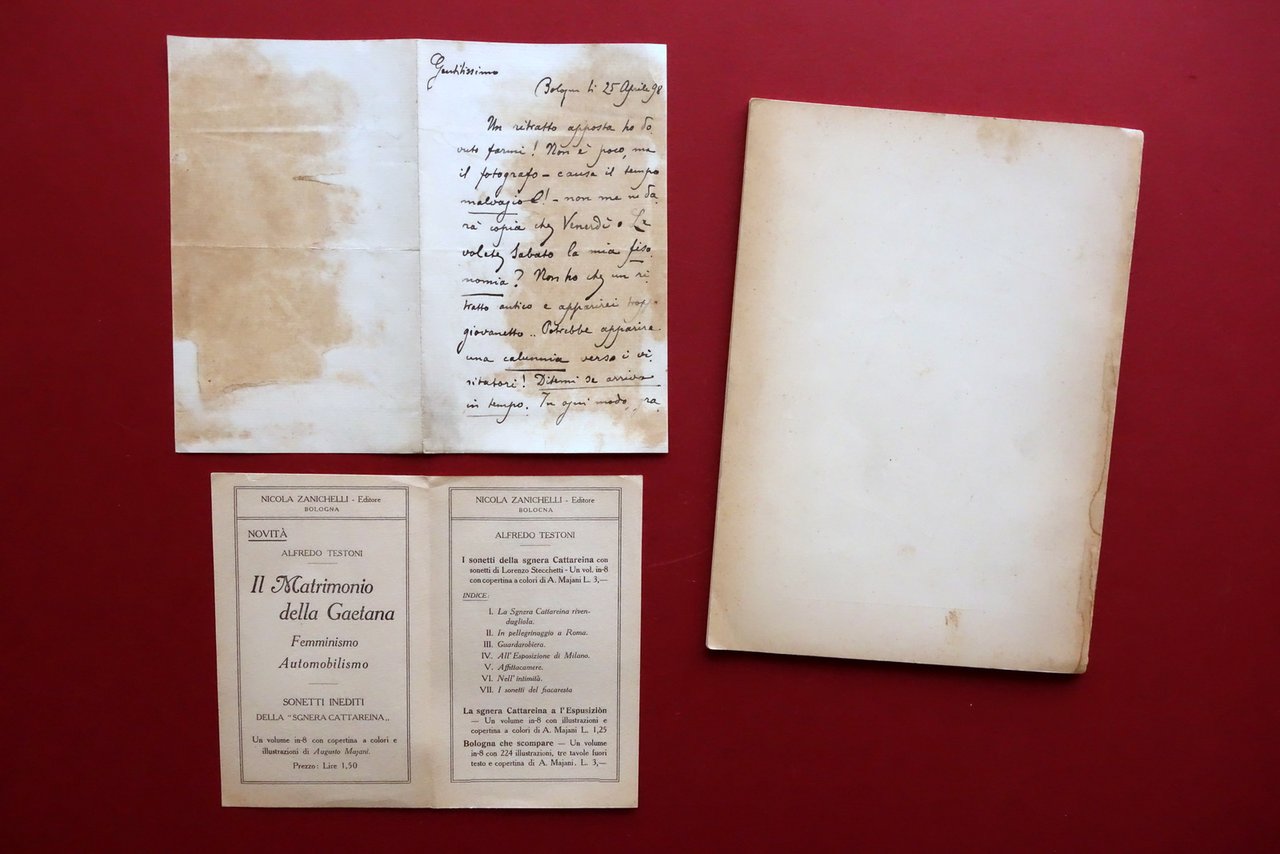 Gentilissimo
Bologna li 25 Aprile 98
Un ritratto apposta ho do
vuto farmi! Non è poco, ma
il fotografo - causa il tempo
malvagio! - non me ne da
rà copia che Venerdì o
volete Sabato la mia fiso
nomia? Non ho che un ri
tratto antico e apparirei trop
giovanetto.. Potrebbe apparire
una calunnia verso i vi
sitatori! Ditemi se arriva
in tempo. In ogni modo, ra
NICOLA ZANICHELLI - Editore
BOLOGNA
NOVITÀ
ALFREDO TESTONI
Il Matrimonio
della Gaetana
Femminismo
Automobilismo
SONETTI INEDITI
DELLA "SGNERA CATTAREINA„
Un volume in-8 con copertina a colori e
illustrazioni di Augusto Majani.
Prezzo: Lire 1,50
NICOLA ZANICHELLI - Editore
BOLOGNA
ALFREDO TESTONI
I sonetti della sgnera Cattareina con
sonetti di Lorenzo Stecchetti - Un vol. in-8
con copertina a colori di A. Majani L. 3,—
INDICE:
I. La Sgnera Cattareina riven-
dagliola.
II. In pellegrinaggio a Roma.
III. Guardarobiera.
IV. All'Esposizione di Milano.
V. Affittacamere.
VI. Nell'intimità.
VII. I sonetti del fiacaresta
La sgnera Cattareina a l'Espusiziòn
— Un volume in-8 con illustrazioni e
copertina a colori di A. Majani L. 1,25
Bologna che scompare — Un volume
in-8 con 224 illustrazioni, tre tavole fuori
testo e copertina di A. Majani, L. 3,—